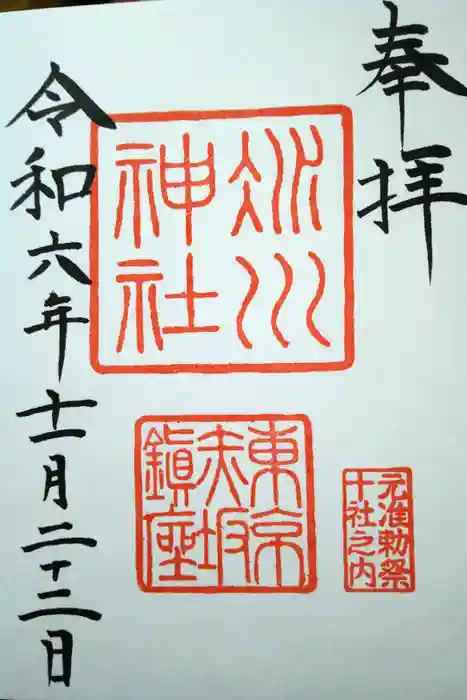 奉拝
氷川
神社
東京
赤坂
鎮座
元准勅祭
十社之内
令和六年十一月二十二日